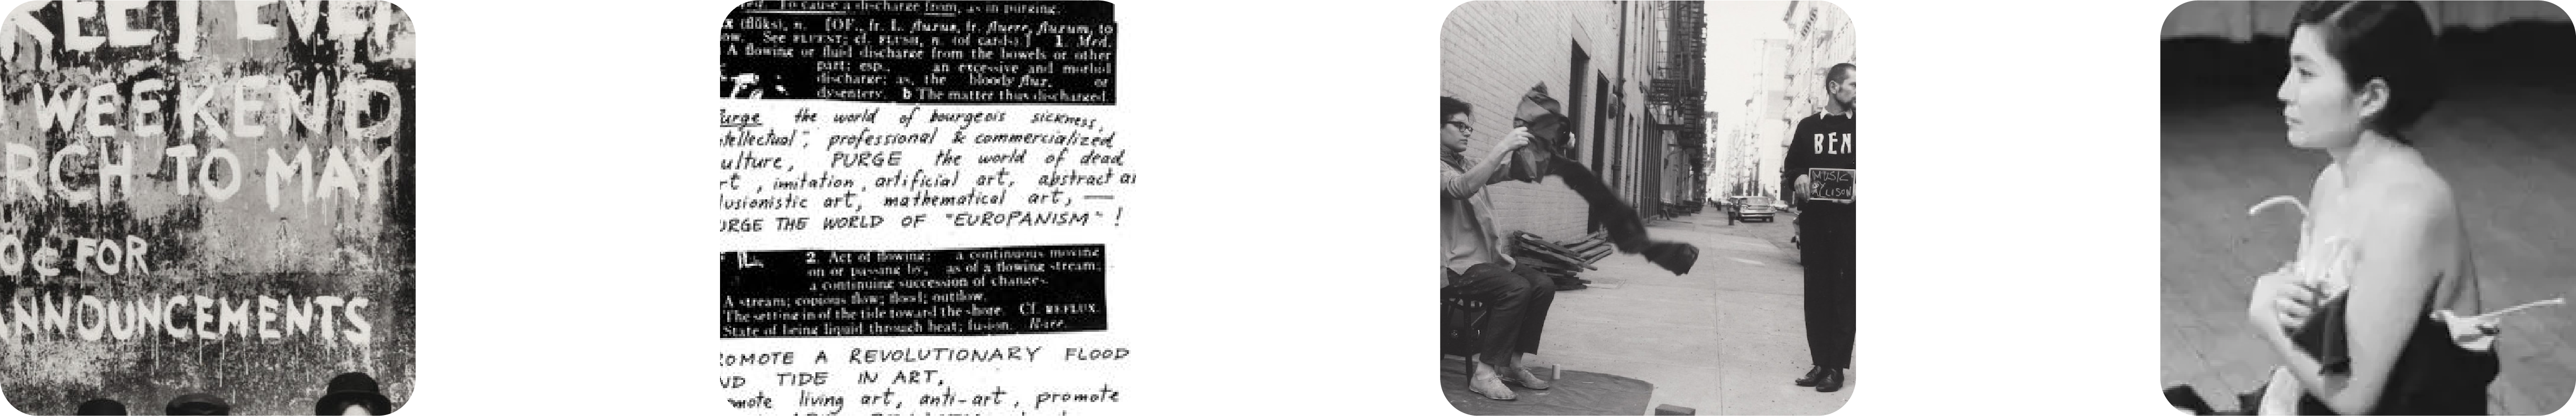 REET EVE
WEEKEND
RCH TO MAY
0¢ FOR
ANNOUNCEMENTS
To cause a discharge from, as in purging.
x (flŭks), n. [OF., fr. L. fluxus, fr. fluere, fluxum, to
ow. See FLUENT; cf. FLUSH, n. (of cards).] 1. Med.
A flowing or fluid discharge from the bowels or other
part; esp., an excessive and morbid
discharge; as, the bloody flux, or
dysentery. b The matter thus discharged.
Purge the world of bourgeois sickness,
ntellectual", professional & commercialized
ulture, PURGE the world of dead
rt, imitation, artificial art, abstract ar
lusionistic art, mathematical art, —
URGE THE WORLD OF "EUROPANISM" !
2. Act of flowing: a continuous moving
on or passing by, as of a flowing stream;
a continuing succession of changes.
A stream; copious flow; flood; outflow.
The setting in of the tide toward the shore. Cf. REFLUX.
State of being liquid through heat; fusion. Rare.
ROMOTE A REVOLUTIONARY FLOOD
ND TIDE IN ART,
mote living art, anti-art, promote
BEN
MUSIC
BY
ALISON